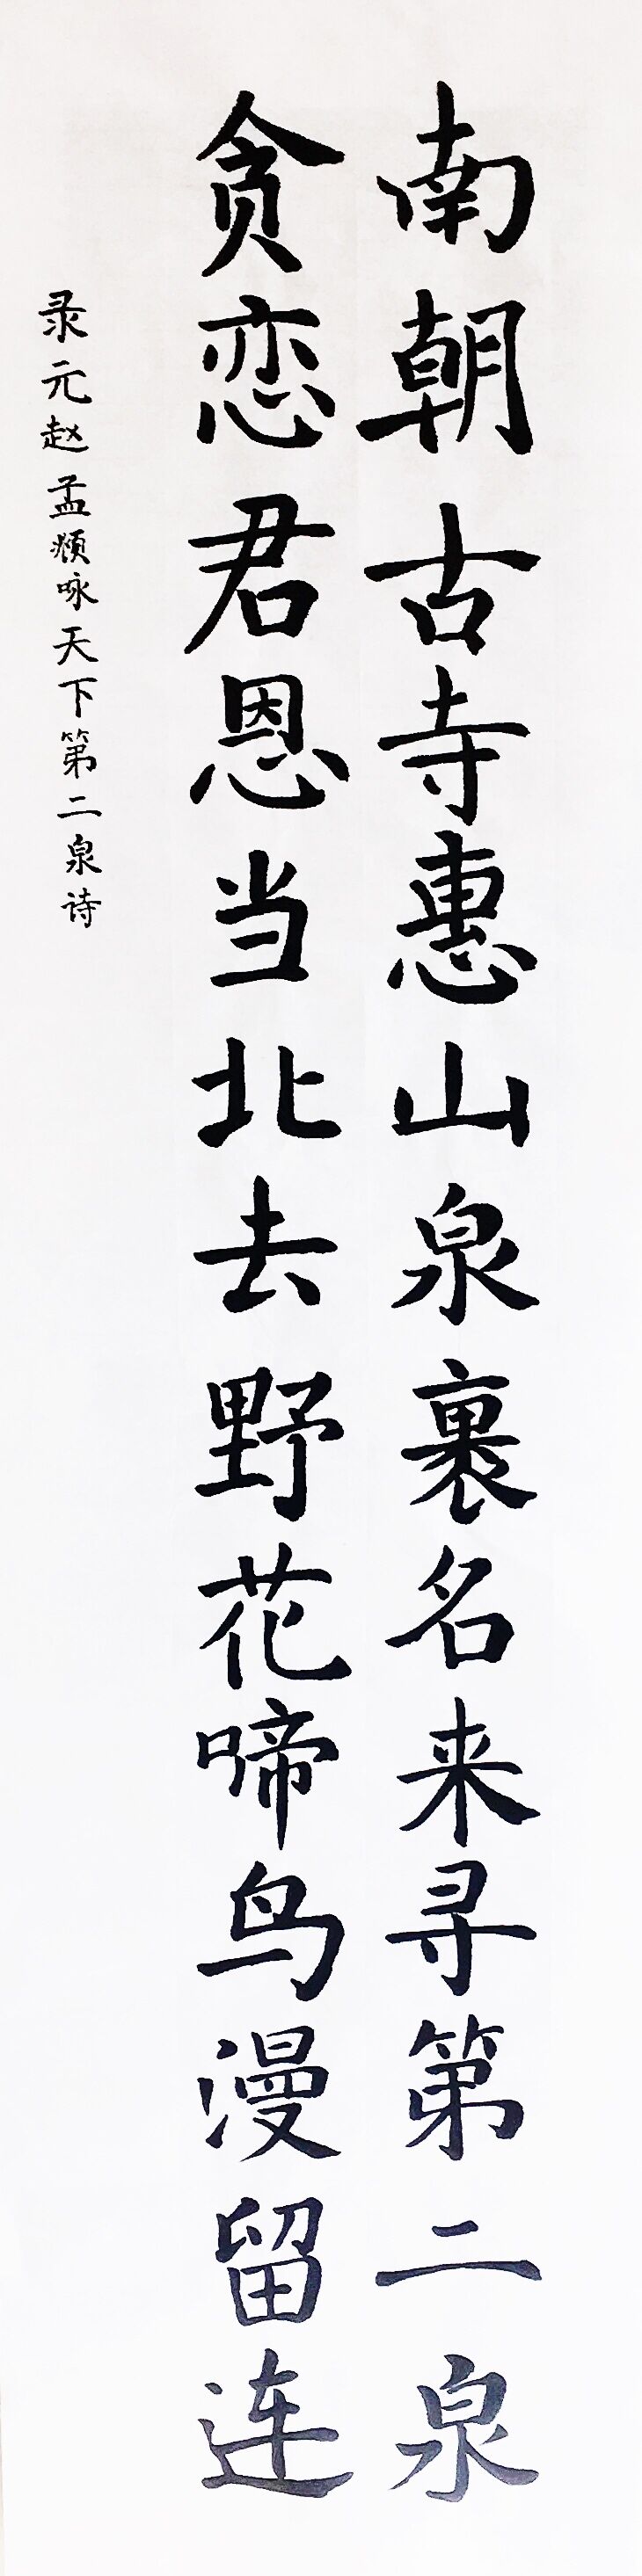 南朝古寺惠山泉裹名来寻第二泉
贪恋君恩当北去野花啼鸟漫留连
录元赵孟頫咏天下第二泉诗